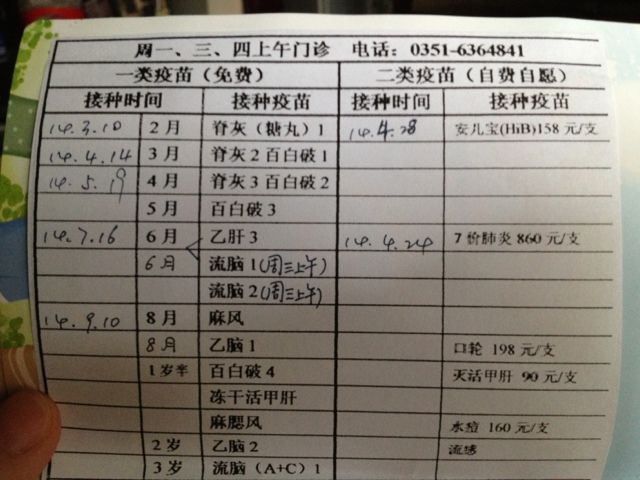 周一、三、四上午门诊 电话：0351-6364841
一类疫苗（免费） 二类疫苗（自费自愿）
接种时间 接种疫苗 接种时间 接种疫苗
14.3.10 2月 脊灰（糖丸）1 14.4.28 安儿宝(HiB)158 元/支
14.4.14 3月 脊灰 2 百白破 1
14.5.19 4月 脊灰 3 百白破 2
5月 百白破 3
14.7.16 6月 乙肝 3 14.4.24 7 价肺炎 860 元/支
6月 流脑 1(周三上午)
流脑 2(周三上午)
14.9.10 8月 麻风
8月 乙脑 1 口轮 198 元/支
1岁半 百白破 4 灭活甲肝 90 元/支
冻干活甲肝
麻腮风 水痘 160 元/支
2岁 乙脑 2 流感
3岁 流脑（A+C）1